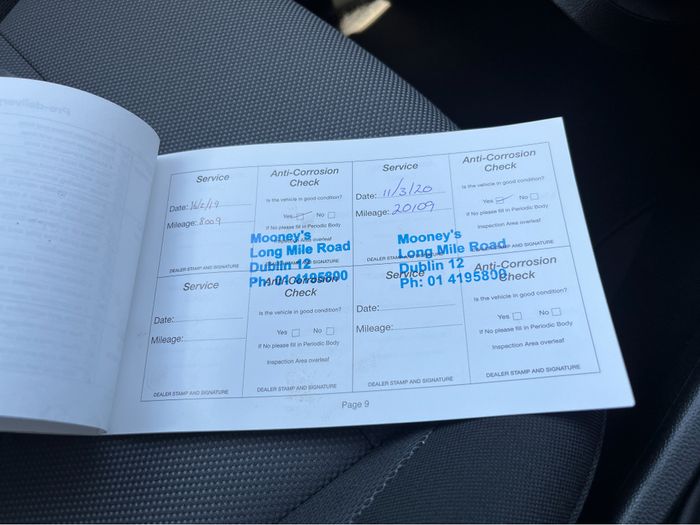 Service
Anti-Corrosion
Check
Date: 16/2/19
Is the vehicle in good condition?
Mileage: 8009
Yes No
If No please fill in Periodic Body
overleaf
Mooney's
Long Mile Road
Dublin 12
Ph: 01 4195800
DEALER STAMP AND SIGNATURE
Service
Anti-Corrosion
Check
Date: 11/3/20
Is the vehicle in good condition?
Mileage: 20109
Yes No
If No please fill in Periodic Body
Inspection Area overleaf
Mooney's
Long Mile Road
Dublin 12
Ph: 01 4195800
DEALER STAMP AND SIGNATURE
Service
Anti-Corrosion
Check
Date:
Is the vehicle in good condition?
Mileage:
Yes No
If No please fill in Periodic Body
Inspection Area overleaf
DEALER STAMP AND SIGNATURE
DEALER STAMP AND SIGNATURE
Service
Anti-Corrosion
Check
Date:
Is the vehicle in good condition?
Mileage:
Yes No
If No please fill in Periodic Body
Inspection Area overleaf
DEALER STAMP AND SIGNATURE
DEALER STAMP AND SIGNATURE
Page 9